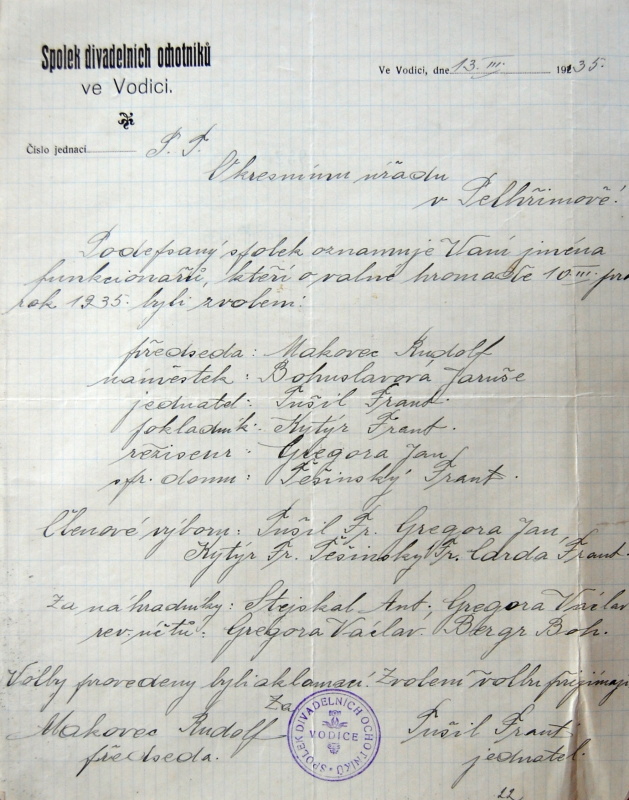 Spolek divadelních ochotníků
ve Vodici.
Ve Vodici, dne 13. III. 1935.
Číslo jednací P. T.
Okresnímu úřadu
v Pelhřimově!
Podepsaný spolek oznamuje Vám jména
funkcionářů, kteří o valné hromadě 10. III. pro
rok 1935. byli zvoleni:
předseda: Makovec Rudolf
náměstek: Bohuslavová Jaruše
jednatel: Tušil Frant.
pokladník: Kytýr Frant.
režiseur: Gregora Jan
spr. domu: Těšinský Frant.
Členové výboru: Tušil Fr. Gregora Jan,
Kytýr Fr. Těšinský Fr. Čarda Frant.
Za náhradníky: Stejskal Ant. Gregora Václav
rev. účtů: Gregora Václav. Bergr Boh.
Volby provedeny byli aklamací. Zvolení volbu přijímají
Za
Makovec Rudolf
předseda.
SPOLEK DIVADELNÍCH OCHOTNÍKŮ
VODICE
Tušil Frant.
jednatel.
22